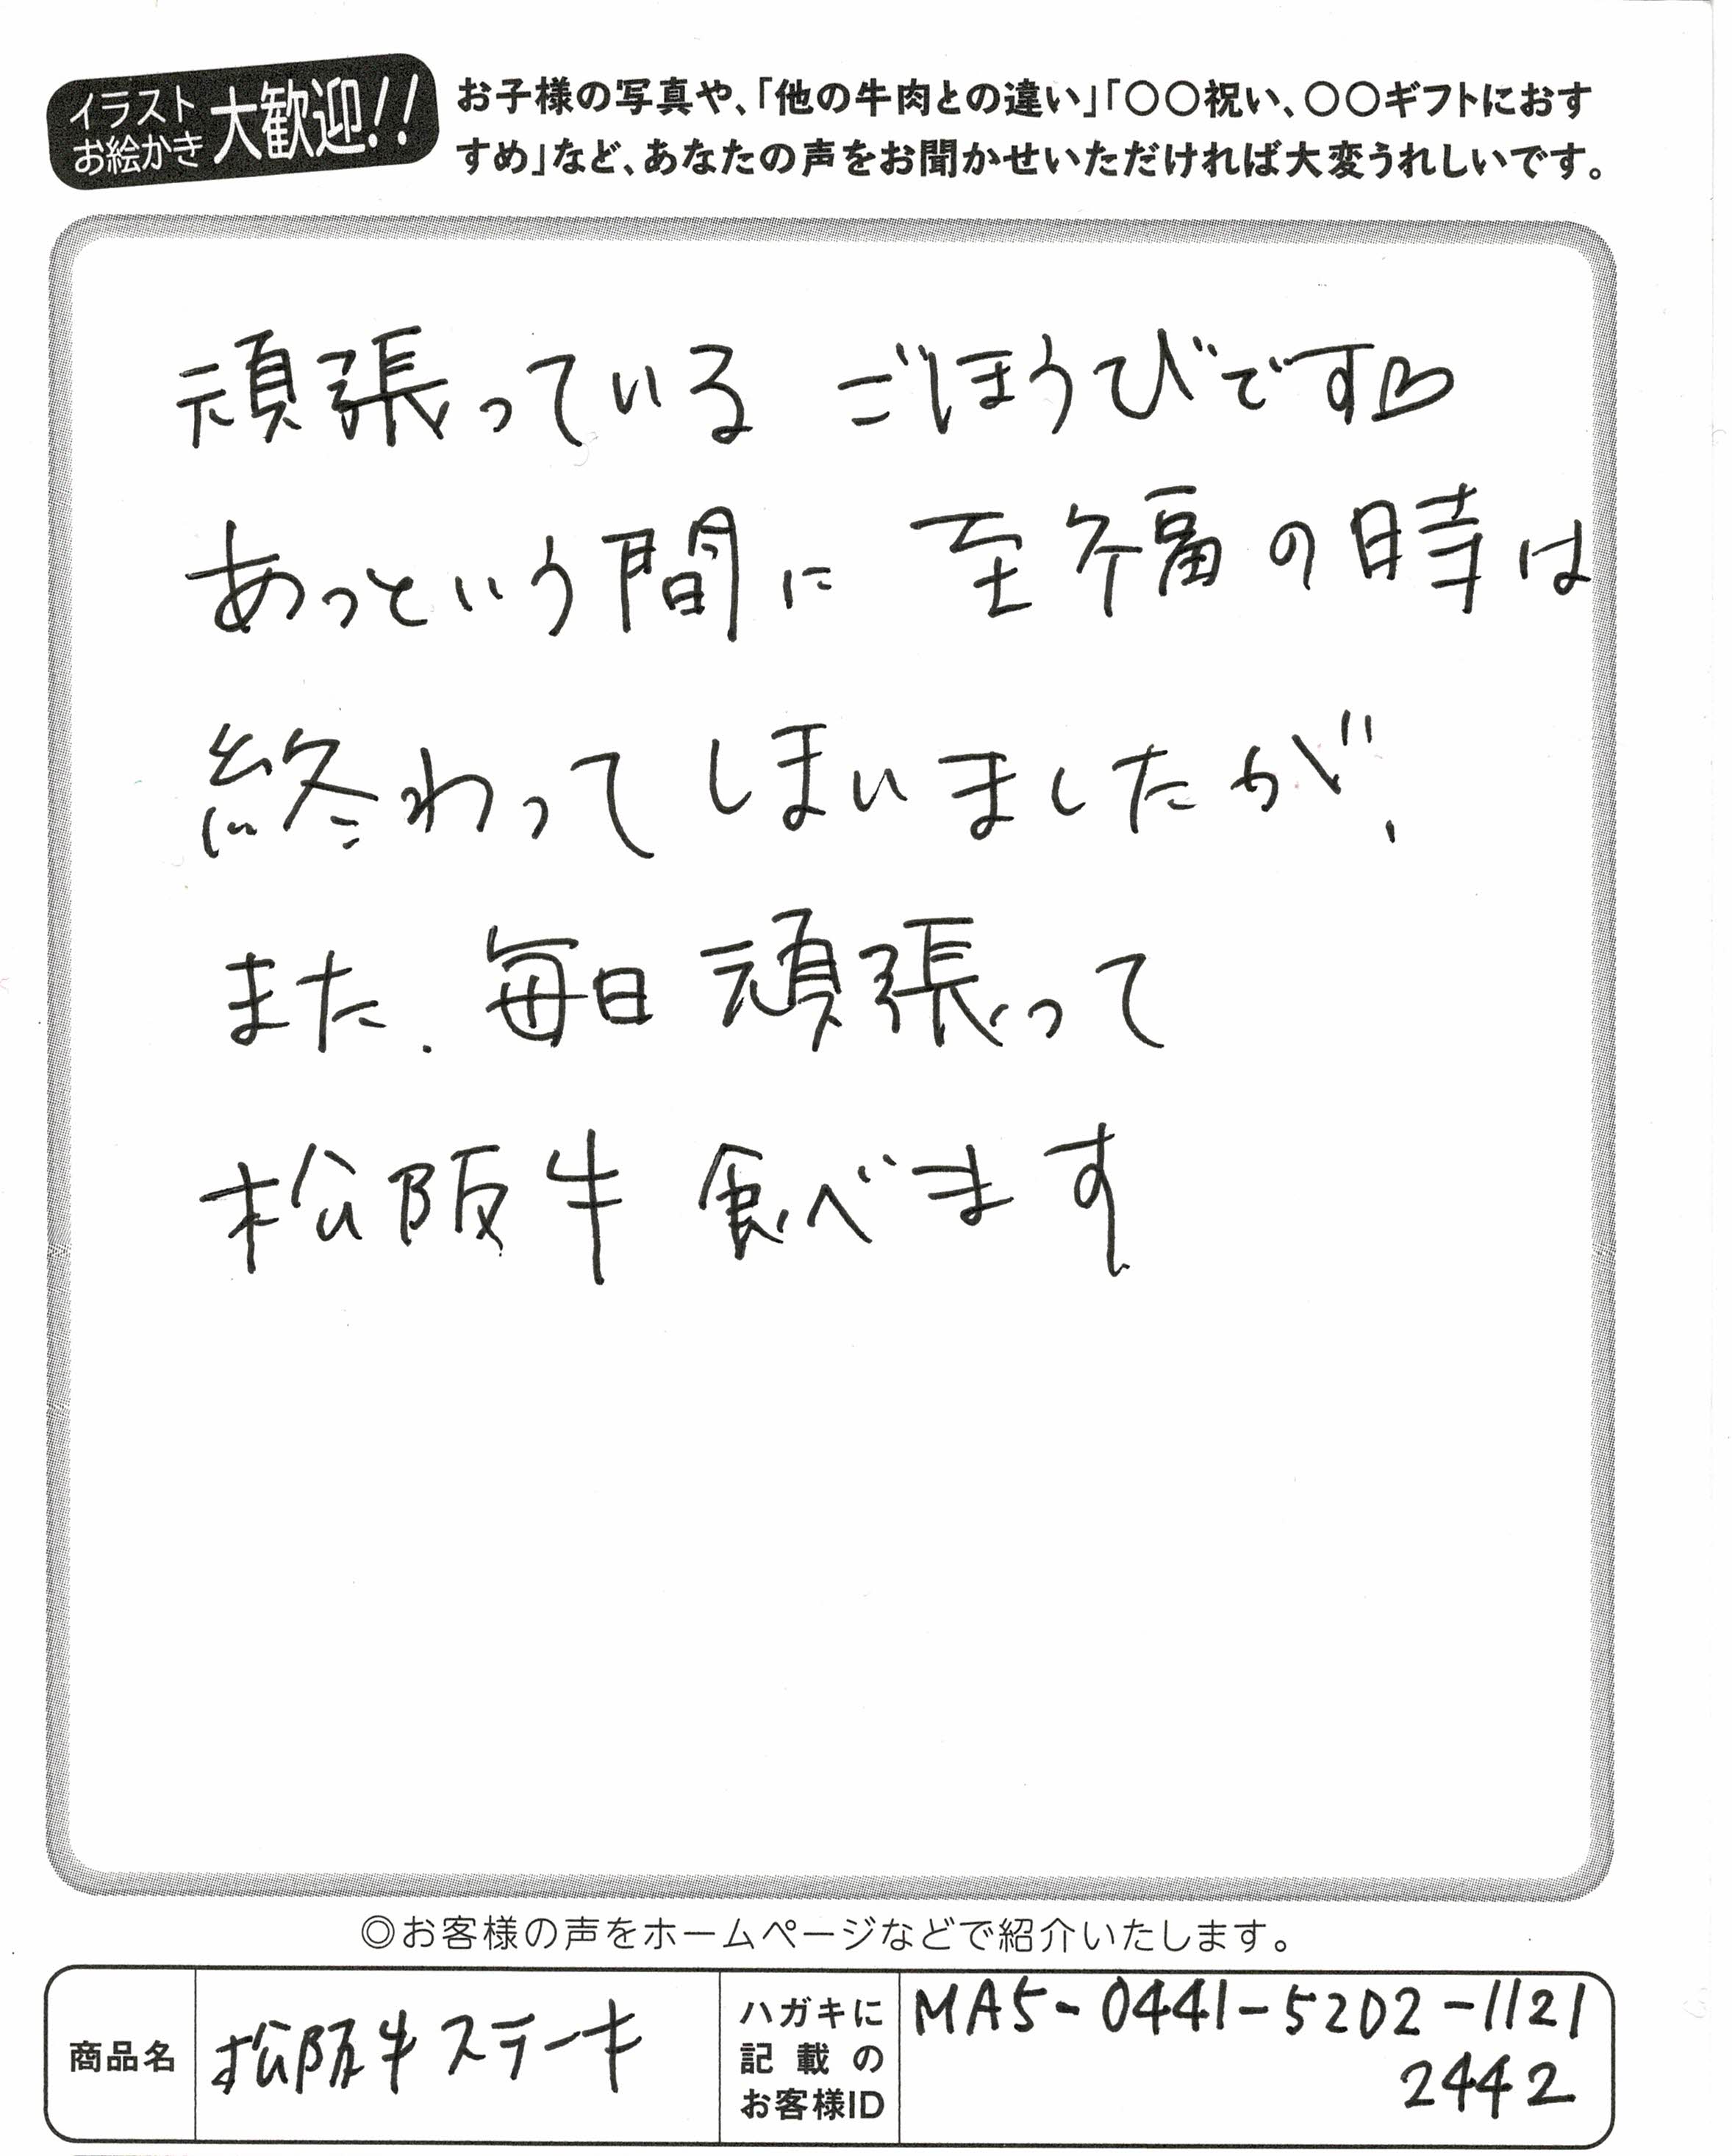 イラスト
お絵かき
大歓迎!!
お子様の写真や、「他の牛肉との違い」「〇〇祝い、〇〇ギフトにおす
すめ」など、あなたの声をお聞かせいただければ大変うれしいです。
頑張っている ごほうびです♡
あっという間に 至福の時は
終わってしまいましたが、
また、毎日頑張って
松阪牛 食べます
◎お客様の声をホームページなどで紹介いたします。
商品名
松阪牛ステーキ
ハガキに
記載の
お客様ID
MA5-0441-5202-1121
2442